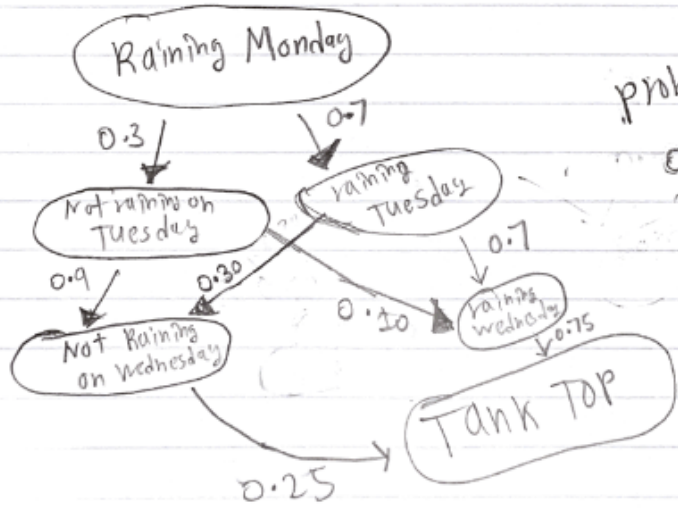 Raining Monday
0.3
0.7
Not raining on
Tuesday
raining
Tuesday
0.9
0.30
0.10
0.7
Not Raining
on Wednesday
raining
wednesday
0.75
Tank Top
0.25